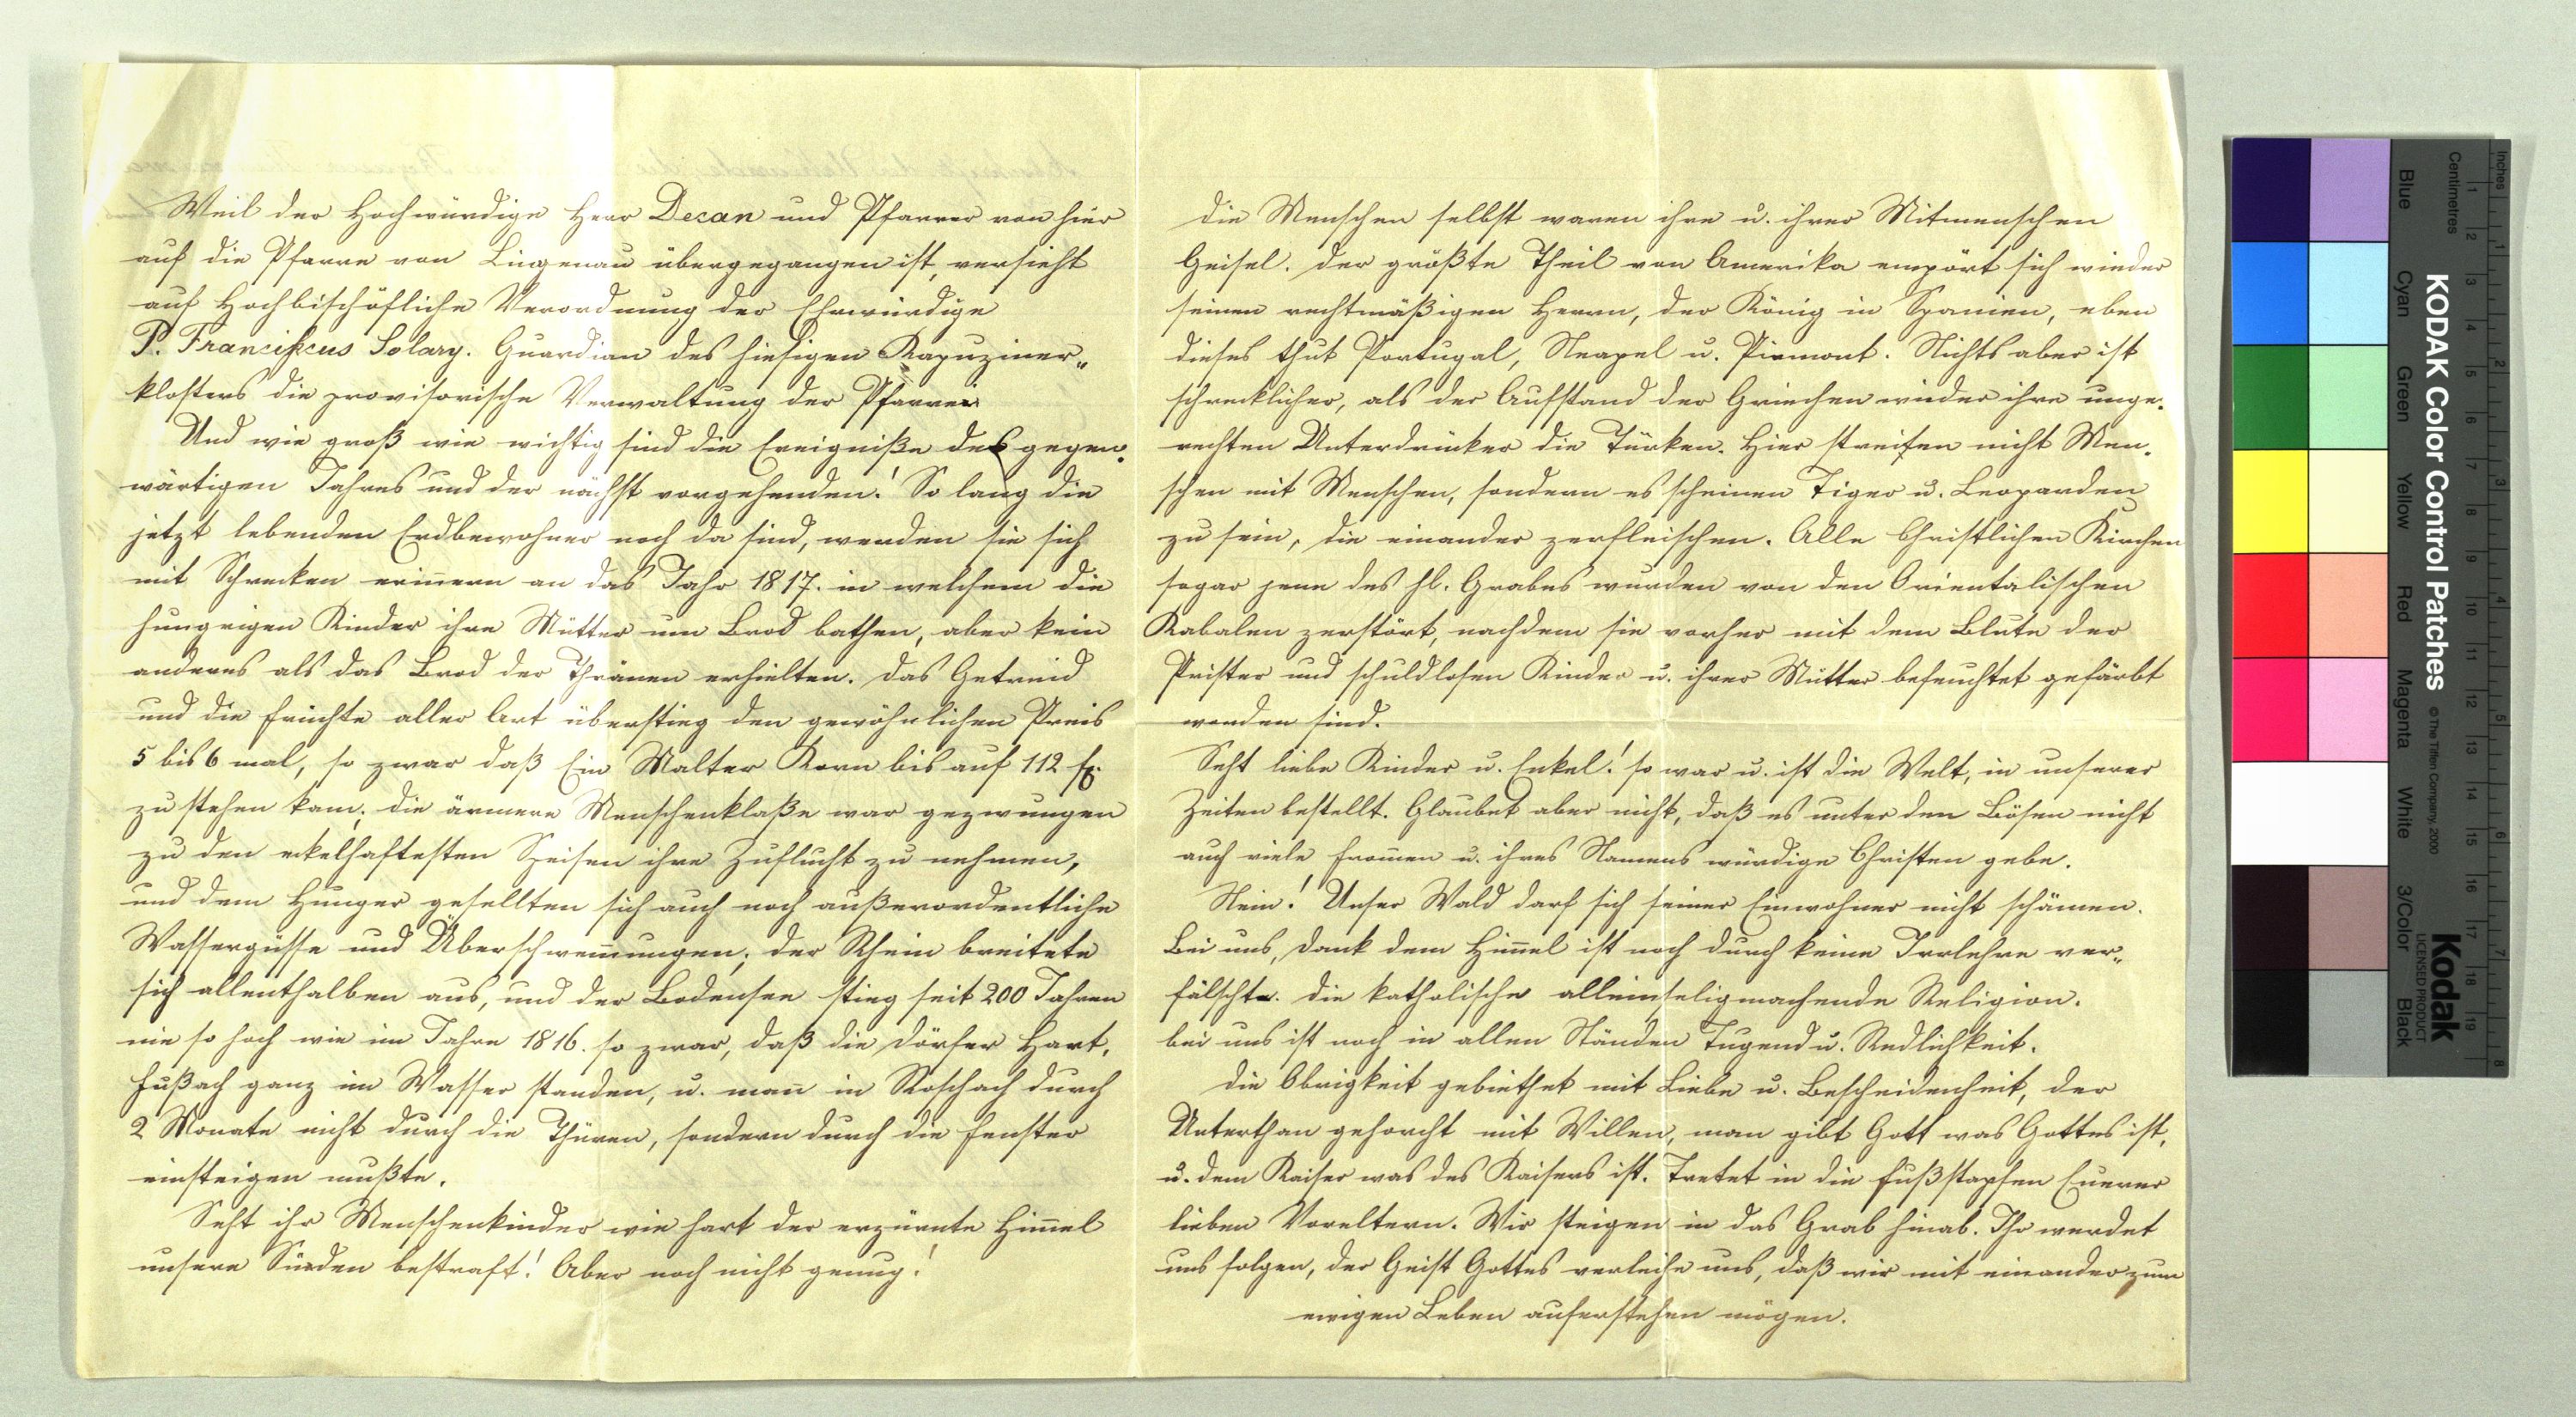 Weil der Hochwürdige Herr Decan und Pfarrer von hier
auf die Pfarre von Lingenau übergegangen ist, versieht
auf Hochbischöfliche Verordnung der Ehrwürdige
P. Franciscus Solary. Guardian des hiesigen Kapuziner„
klosters die provisorische Verwaltung der Pfarrei
Und wie groß wie wichtig sind die Ereigniße des gegen.
wärtigen Jahres und der nächst vorgehenden! So lang die
jetzt lebenden Erdbewohner noch da sind, werden sie sich
mit Schrecken erinnern an das Jahr 1817. in welchem die
hungrigen Kinder ihre Mütter um Brod bathen, aber kein
anderes als das Brod der Thränen erhielten. Das Getreid
und die Früchte aller Art überstieg den gewöhnlichen Preis
5 bis 6 mal, so zwar daß Ein Malter Korn bis auf 112 fl.
zu stehen kam; die ärmere Menschenklaße war gezwungen
zu den eckelhaftesten Speisen ihre Zuflucht zu nehmen,
und dem Hunger gesellten sich auch noch außerordentliche
Wassergüsse und Überschwemmungen; der Rhein breitete
sich allenthalben aus, und der Bodensee stieg seit 200 Jahren
nie so hoch wie im Jahre 1816. so zwar, daß die Dörfer Hart,
Fußach ganz im Wasser standen, u. man in Roschach durch
2 Monate nicht durch die Thüren, sondern durch die Fenster
einsteigen mußte.
Seht ihr Menschenkinder wie hart der erzürnte Himmel
unsere Sünden bestraft! Aber noch nicht genug!
Die Menschen selbst waren ihre u. ihrer Mitmenschen
Geisel. Der größte Theil von Amerika empört sich wieder
seinen rechtmäßigen Herrn, der König in Spanien, eben
dieses thut Portugal, Neapel u. Piemont. Nichts aber ist
schrecklicher, als der Aufstand der Griechen wieder ihre unge.
rechten Unterdrücker die Türken. Hier streiten nicht Men.
schen mit Menschen, sondern es scheinen Tiger u. Leoparden
zu sein, die einander zerfleischen. Alle Christlichen Kirchen
sogar jene des hl. Grabes wurden von den Orientalischen
Kabalen zerstört, nachdem sie vorher mit dem Blute der
Prister und schuldlosen Kinder u. ihrer Mütter befeuchtet gefärbt
worden sind.
Seht liebe Kinder u. Enkel! so war u. ist die Welt, in unserer
Zeiten bestellt. Glaubet aber nicht, daß es unter den Bösen nicht
auch viele frommen u. ihres Namens würdige Christen gebe.
Nein! Unser Wald darf sich seiner Einwohner nicht schämen.
Bei uns, Dank dem Himmel ist noch durch keine Irrlehre ver„
fälscht. die katholische alleinseligmachende Religion.
bei uns ist noch in allen Ständen Tugend u. Redlichkeit.
Die Obrigkeit gebiethet mit Liebe u. Bescheidenheit, der
Unterthan gehorcht mit Willen, man gibt Gott was Gottes ist,
u. dem Kaiser was des Kaisers ist. Tretet in die Fußstapfen Euerer
lieben Voreltern. Wir steigen in das Grab hinab. Ihr werdet
uns folgen, der Geist Gottes verleihe uns, daß wir mit einander zum
ewigen Leben auferstehen mögen.
KODAK Color Control Patches © The Tiffen Company, 2000
Kodak
LICENSED PRODUCT
Blue
Cyan
Green
Yellow
Red
Magenta
White
3/Color
Black
Inches
1 2 3 4 5 6 7 8
Centimetres
1 2 3 4 5 6 7 8 9 10 11 12 13 14 15 16 17 18 19